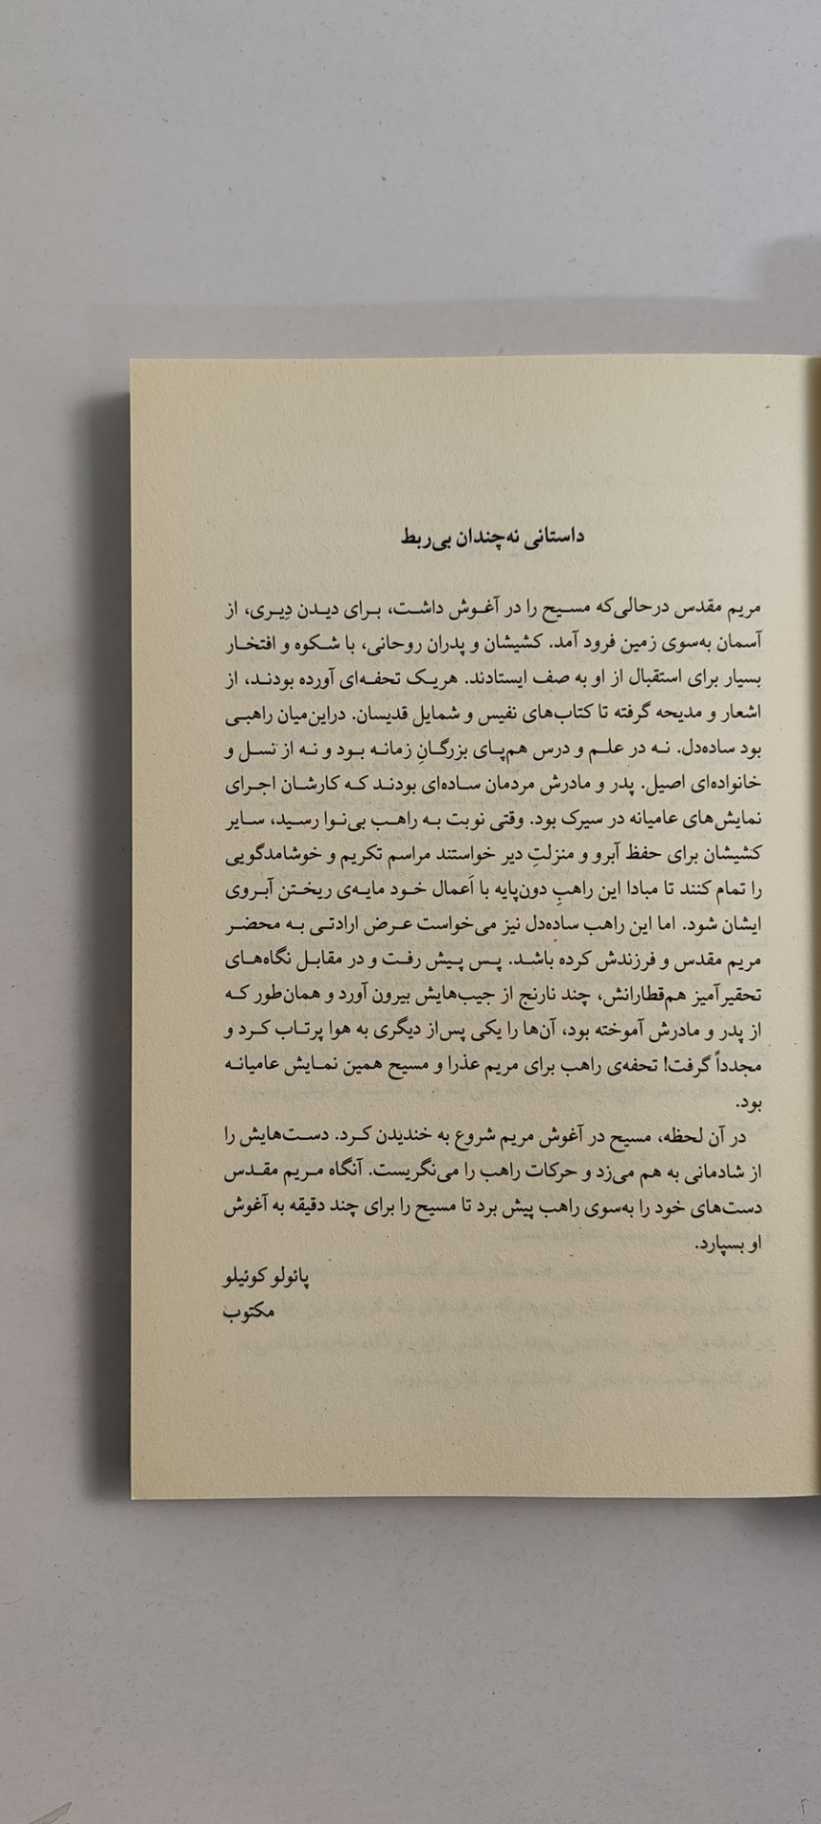 داستانی نه‌چندان بی‌ربط
مریم مقدس درحالی‌که مسیح را در آغوش داشت، برای دیدن دِیری، از
آسمان به‌سوی زمین فرود آمد. کشیشان و پدران روحانی، با شکوه و افتخار
بسیار برای استقبال از او به صف ایستادند. هریک تحفه‌ای آورده بودند، از
اشعار و مدیحه گرفته تا کتاب‌های نفیس و شمایل قدیسان. دراین‌میان راهبی
بود ساده‌دل. نه در علم و درس هم‌پای بزرگانِ زمانه بود و نه از نسل و
خانواده‌ای اصیل. پدر و مادرش مردمان ساده‌ای بودند که کارشان اجرای
نمایش‌های عامیانه در سیرک بود. وقتی نوبت به راهب بی‌نوا رسید، سایر
کشیشان برای حفظ آبرو و منزلتِ دیر خواستند مراسم تکریم و خوشامدگویی
را تمام کنند تا مبادا این راهبِ دون‌پایه با اَعمال خود مایه‌ی ریختن آبروی
ایشان شود. اما این راهب ساده‌دل نیز می‌خواست عرض ارادتی به محضر
مریم مقدس و فرزندش کرده باشد. پس پیش رفت و در مقابل نگاه‌های
تحقیرآمیز هم‌قطارانش، چند نارنج از جیب‌هایش بیرون آورد و همان‌طور که
از پدر و مادرش آموخته بود، آن‌ها را یکی پس‌از دیگری به هوا پرتاب کرد و
مجدداً گرفت! تحفه‌ی راهب برای مریم عذرا و مسیح همین نمایش عامیانه
بود.
در آن لحظه، مسیح در آغوش مریم شروع به خندیدن کرد. دست‌هایش را
از شادمانی به هم می‌زد و حرکات راهب را می‌نگریست. آنگاه مریم مقدس
دست‌های خود را به‌سوی راهب پیش برد تا مسیح را برای چند دقیقه به آغوش
او بسپارد.
پائولو کوئیلو
مکتوب